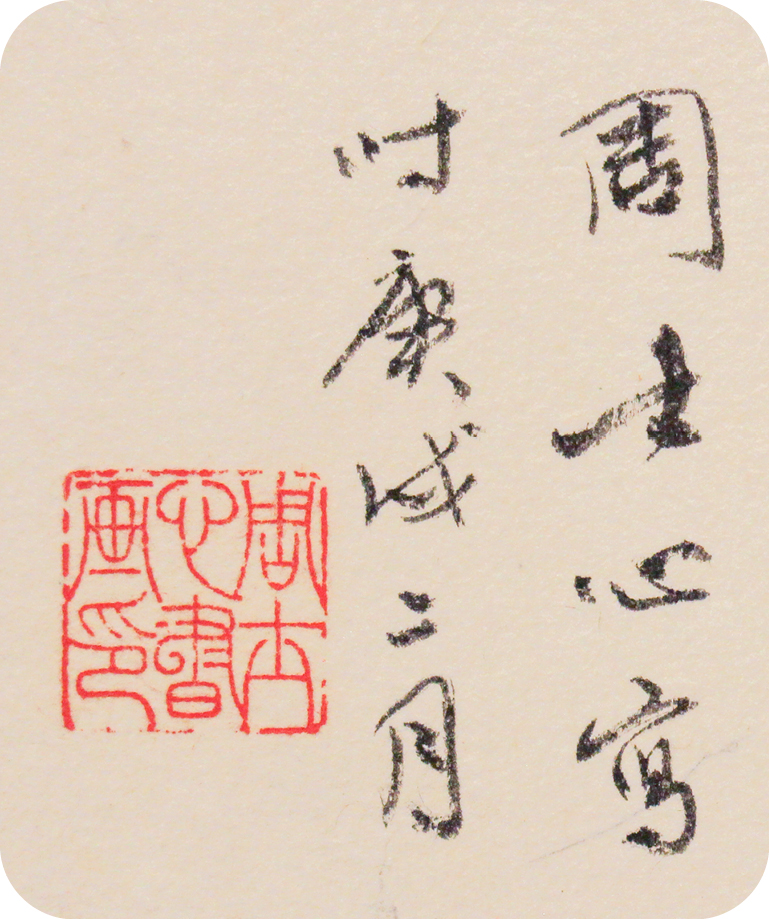 周士心寫
时庚戌二月
周士
心書
畫印